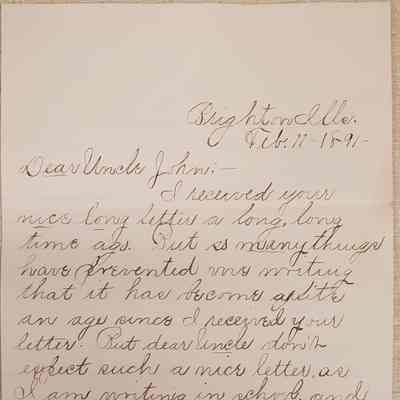 Brighton Ills.
Feb. 11-1891-
Dear Uncle John:-
I received your
nice long letter a long, long
time ago. But so many things
have prevented me writing
that it has become quite
an age since I received your
letter. But dear uncle don't
expect such a nice letter, as
I am writing in school, and